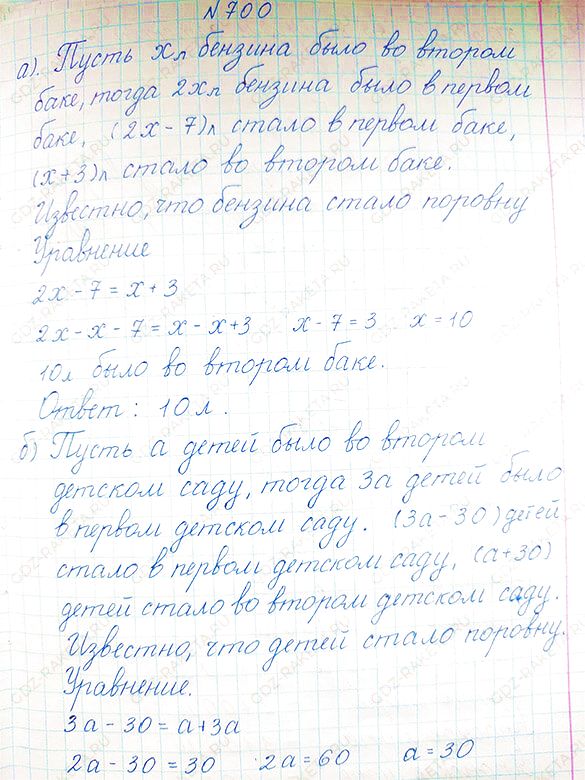 №700
а). Пусть хл бензина было во втором
баке, тогда 2хл бензина было в первом
баке, (2х-7)л стало в первом баке,
(х+3)л стало во втором баке.
Известно, что бензина стало поровну
Уравнение
2х-7=х+3
2х-х-7=х-х+3 х-7=3 х=10
10л было во втором баке.
Ответ: 10л.
б) Пусть а детей было во втором
детском саду, тогда 3а детей было
в первом детском саду. (3а-30) детей
стало в первом детском саду, (а+30)
детей стало во втором детском саду.
Известно, что детей стало поровну.
Уравнение.
3а-30=а+3а
2а-30=30 2а=60 а=30